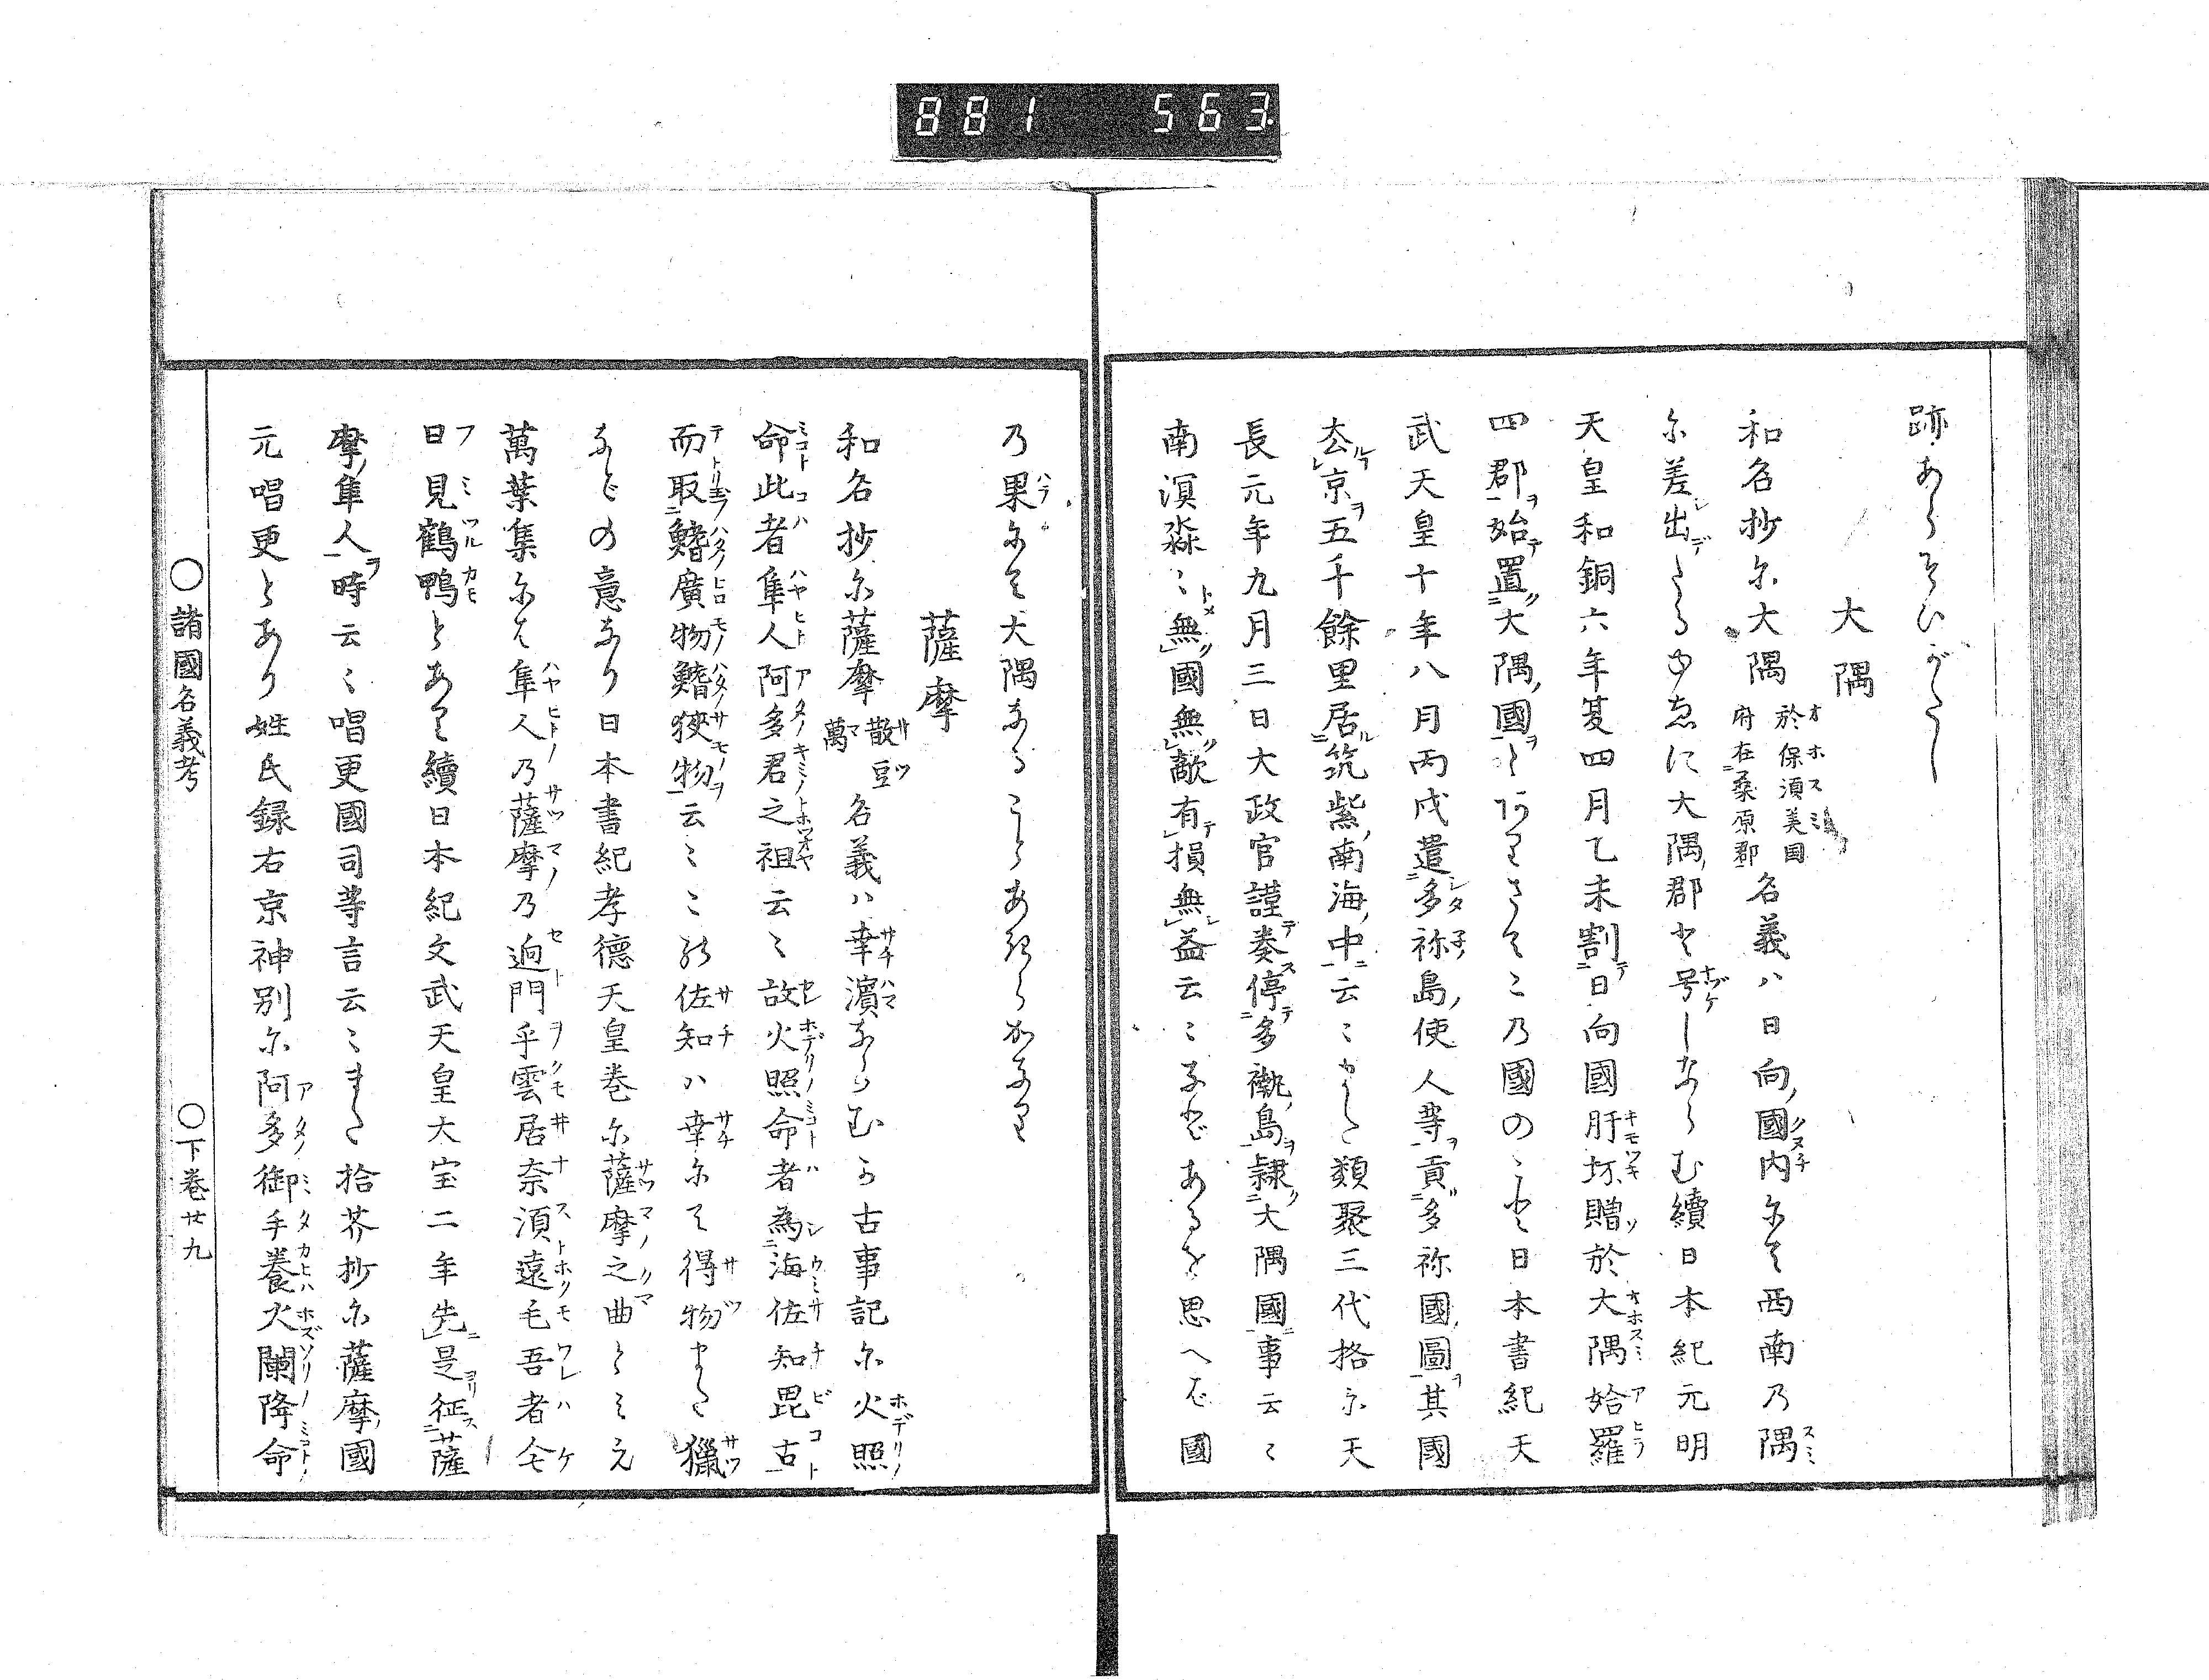 881 563
跡あらそひがたし
大隅
和名抄尓大隅 於保須美国府在桑原郡 名義ハ日向国内尓て西南乃隅
尓差出たるゆゑに大隅郡と号しならむ續日本紀元明
天皇和銅六年夏四月乙未割日向國肝坏贈於大隅姶羅
四郡始置大隅國とありさてこの國のこと日本書紀天
武天皇十年八月丙戌遣多祢島使人等貢多祢國圖其國
去京五千餘里居筑紫南海中云〻また類聚三代格尓天
長元年九月三日大政官謹奏停多褹島隷大隅國事云〻
南溟淼〻無國無敵有損無益云〻などあるを思へば國
乃果尓て大隅なることあきらかなり
薩摩
和名抄尓薩摩 散豆萬 名義ハ幸濵ならむか古事記尓火照
命此者隼人阿多君之祖云〻故火照命者為海佐知毘古
而取鰭廣物鰭狹物云〻この佐知ハ幸尓て得物また獵
などの意なり日本書紀孝徳天皇巻尓薩摩之曲とみえ
萬葉集尓も隼人乃薩摩乃迫門乎雲居奈須遠毛吾者今
日見鶴鴨とあり續日本紀文武天皇大宝二年先是征薩
摩隼人時云〻唱更國司等言云〻また拾芥抄尓薩摩國
元唱更とあり姓氏録右京神別尓阿多御手養火闌降命
○諸國名義考 ○下巻廿九